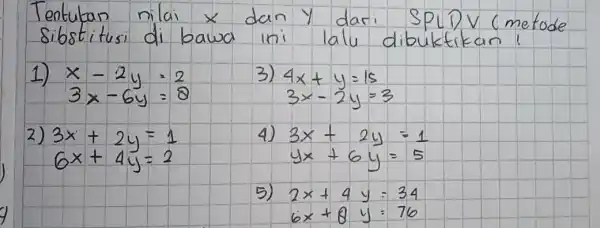 Tentukan nilai x dan y dari SPLDV (metode
Sibstitusi di bawa ini lalu dibuktikan !
1) x - 2y = 2
3x - 6y = 8
3) 4x + y = 15
3x - 2y = 3
2) 3x + 2y = 1
6x + 4y = 2
4) 3x + 2y = 1
4x + 6y = 5
5) 2x + 4y = 34
6x + 8y = 76